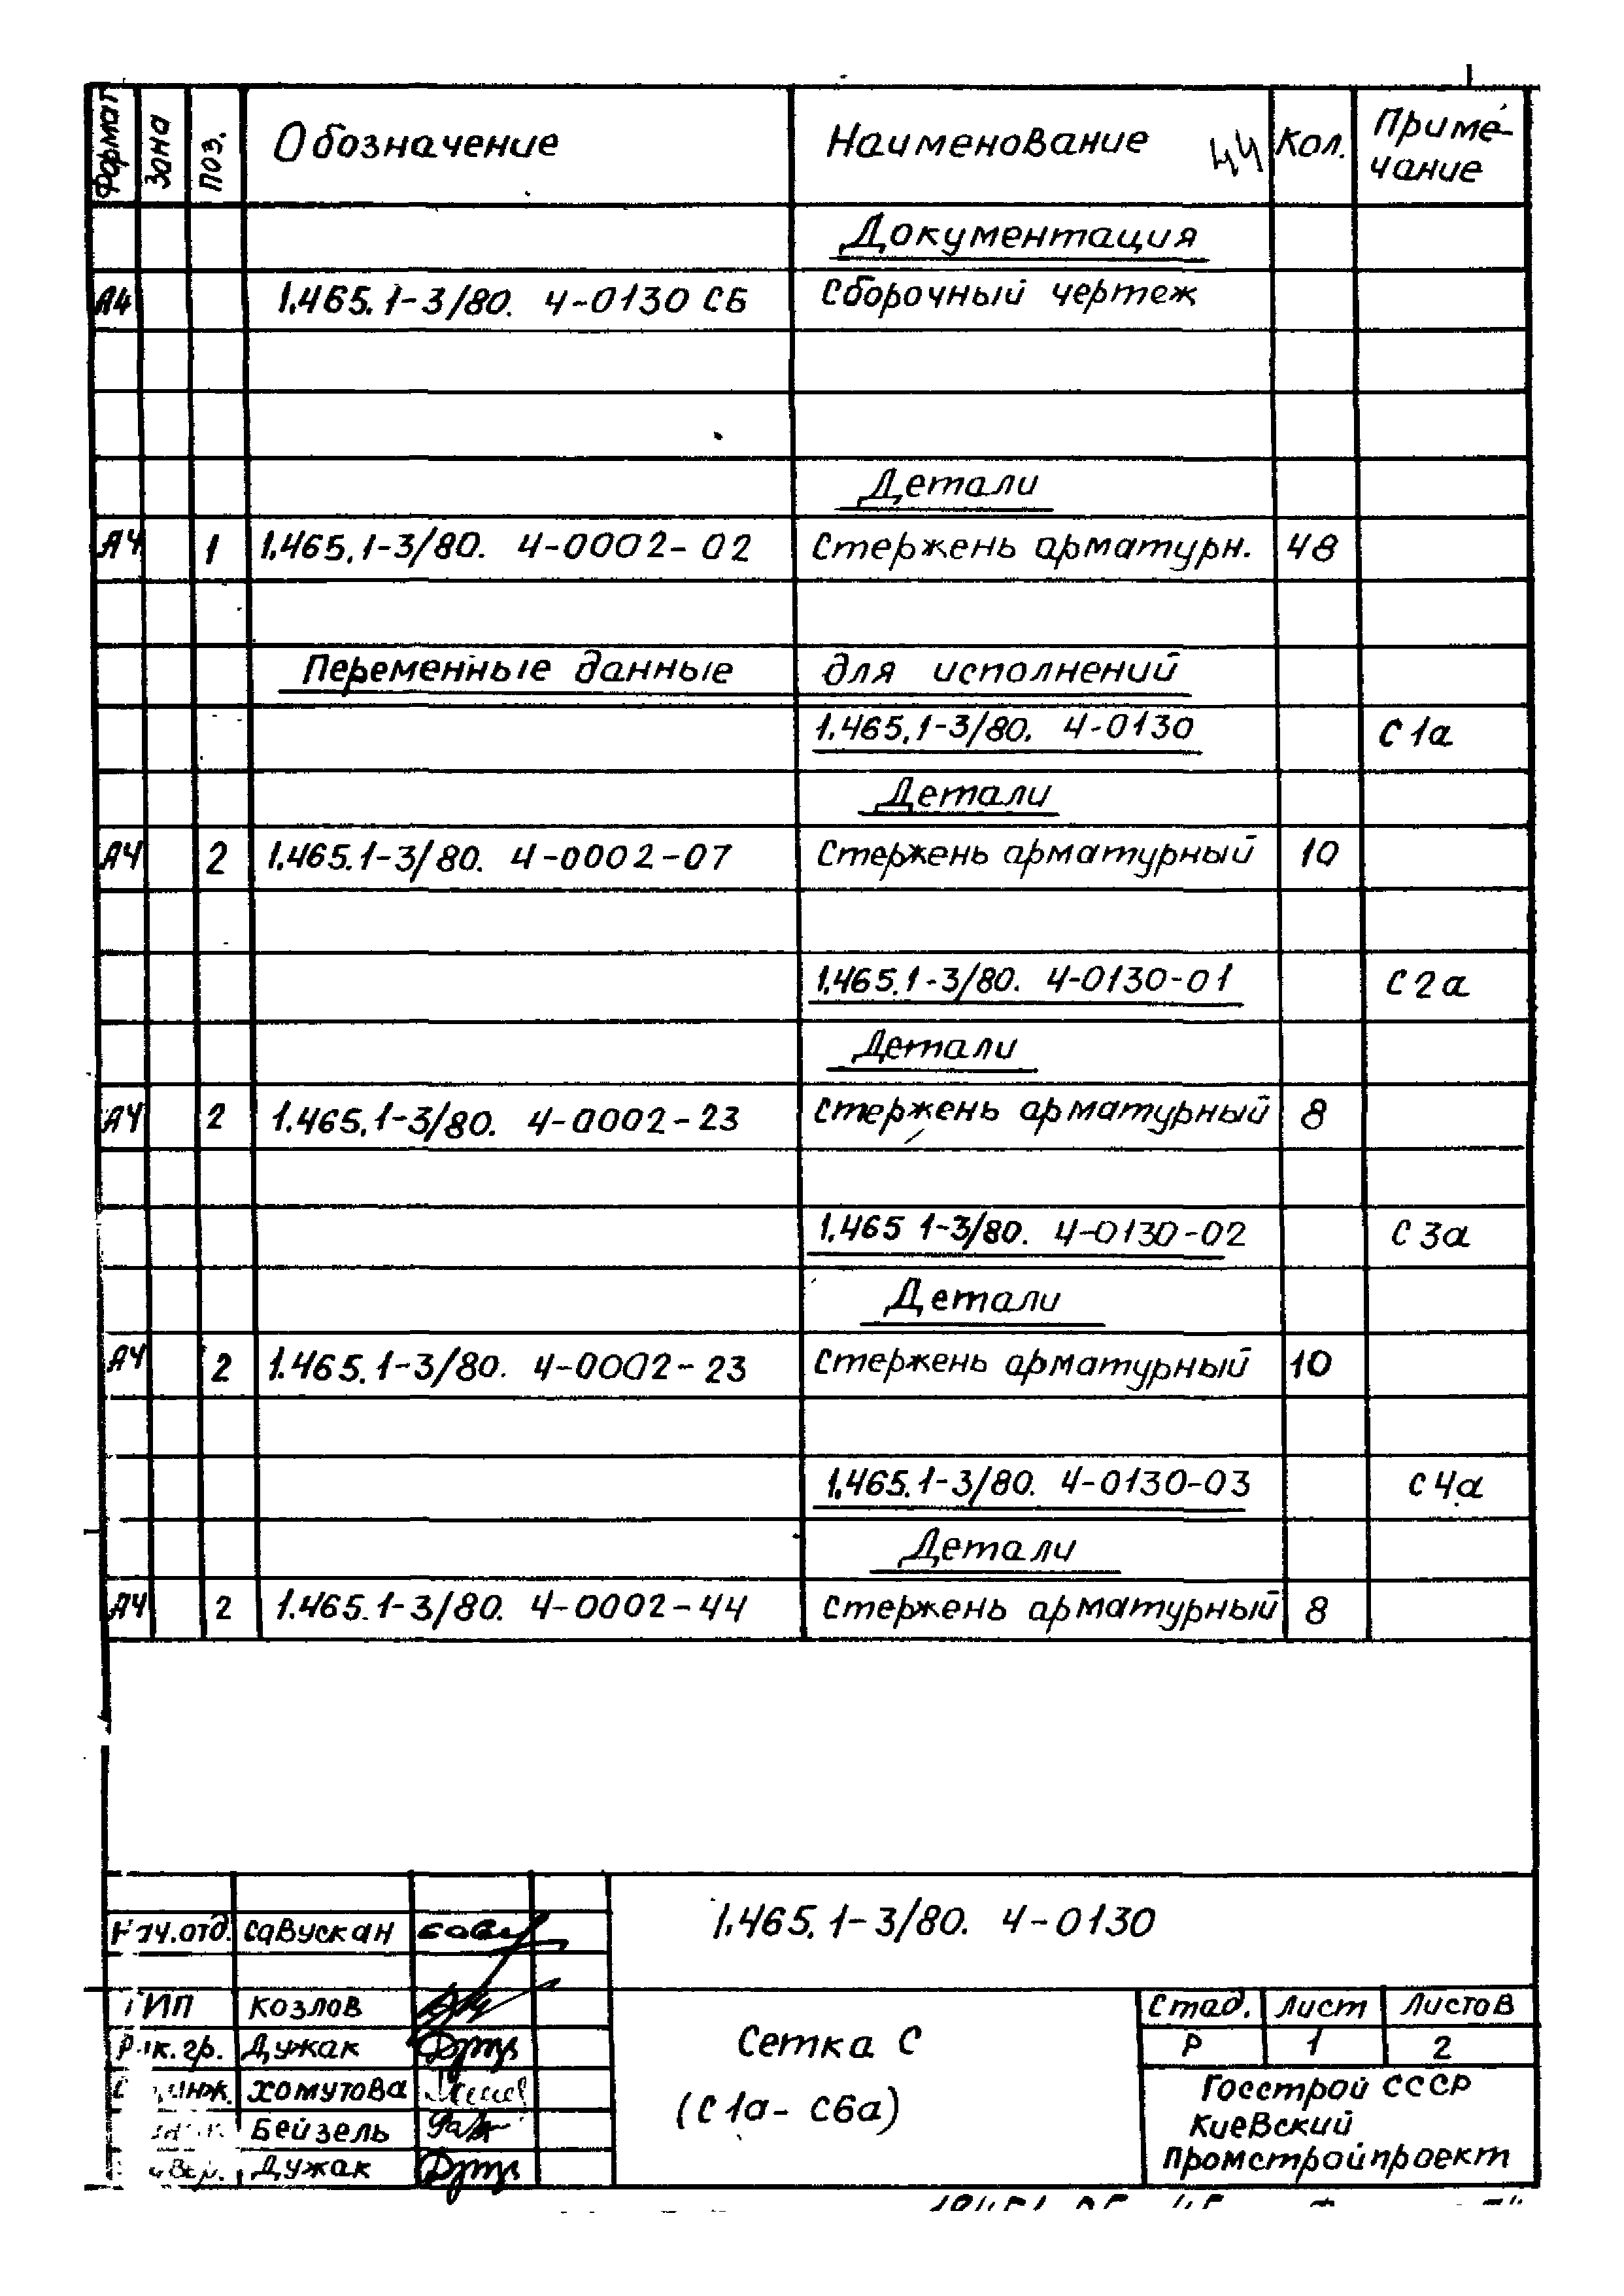 Формат Зона Поз. Обозначение Наименование 44 Кол. Приме-
чание
Документация
А4 1.465.1-3/80. 4-0130 СБ Сборочный чертеж
Детали
А4 1 1.465.1-3/80. 4-0002-02 Стержень арматурн. 48
Переменные данные для исполнений
1.465.1-3/80. 4-0130 С1а
Детали
А4 2 1.465.1-3/80. 4-0002-07 Стержень арматурный 10
1.465.1-3/80. 4-0130-01 С2а
Детали
А4 2 1.465.1-3/80. 4-0002-23 Стержень арматурный 8
1.465 1-3/80. 4-0130-02 С3а
Детали
А4 2 1.465.1-3/80. 4-0002-23 Стержень арматурный 10
1.465.1-3/80. 4-0130-03 С4а
Детали
А4 2 1.465.1-3/80. 4-0002-44 Стержень арматурный 8
1.465.1-3/80. 4-0130
Нач.отд. Савускан
ГИП Козлов
Рук.гр. Дужак
инж. Хомутова
Бейзель
Дужак
Сетка С
(С1а- С6а)
Стад. Лист Листов
Р 1 2
Госстрой СССР
Киевский
Промстройпроект